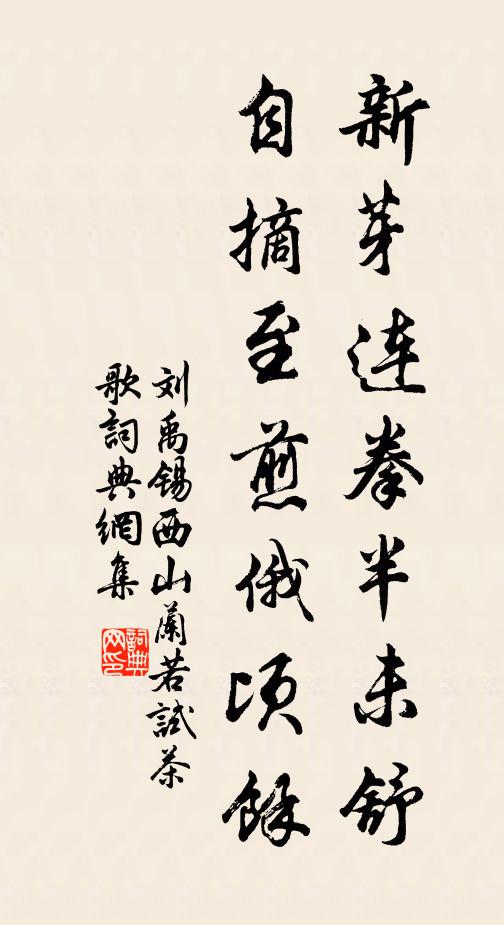 新芽连拳半未舒
自摘至煎俄顷馀
刘禹锡西山蘭若試茶
歌詞典網集
詞典
网印